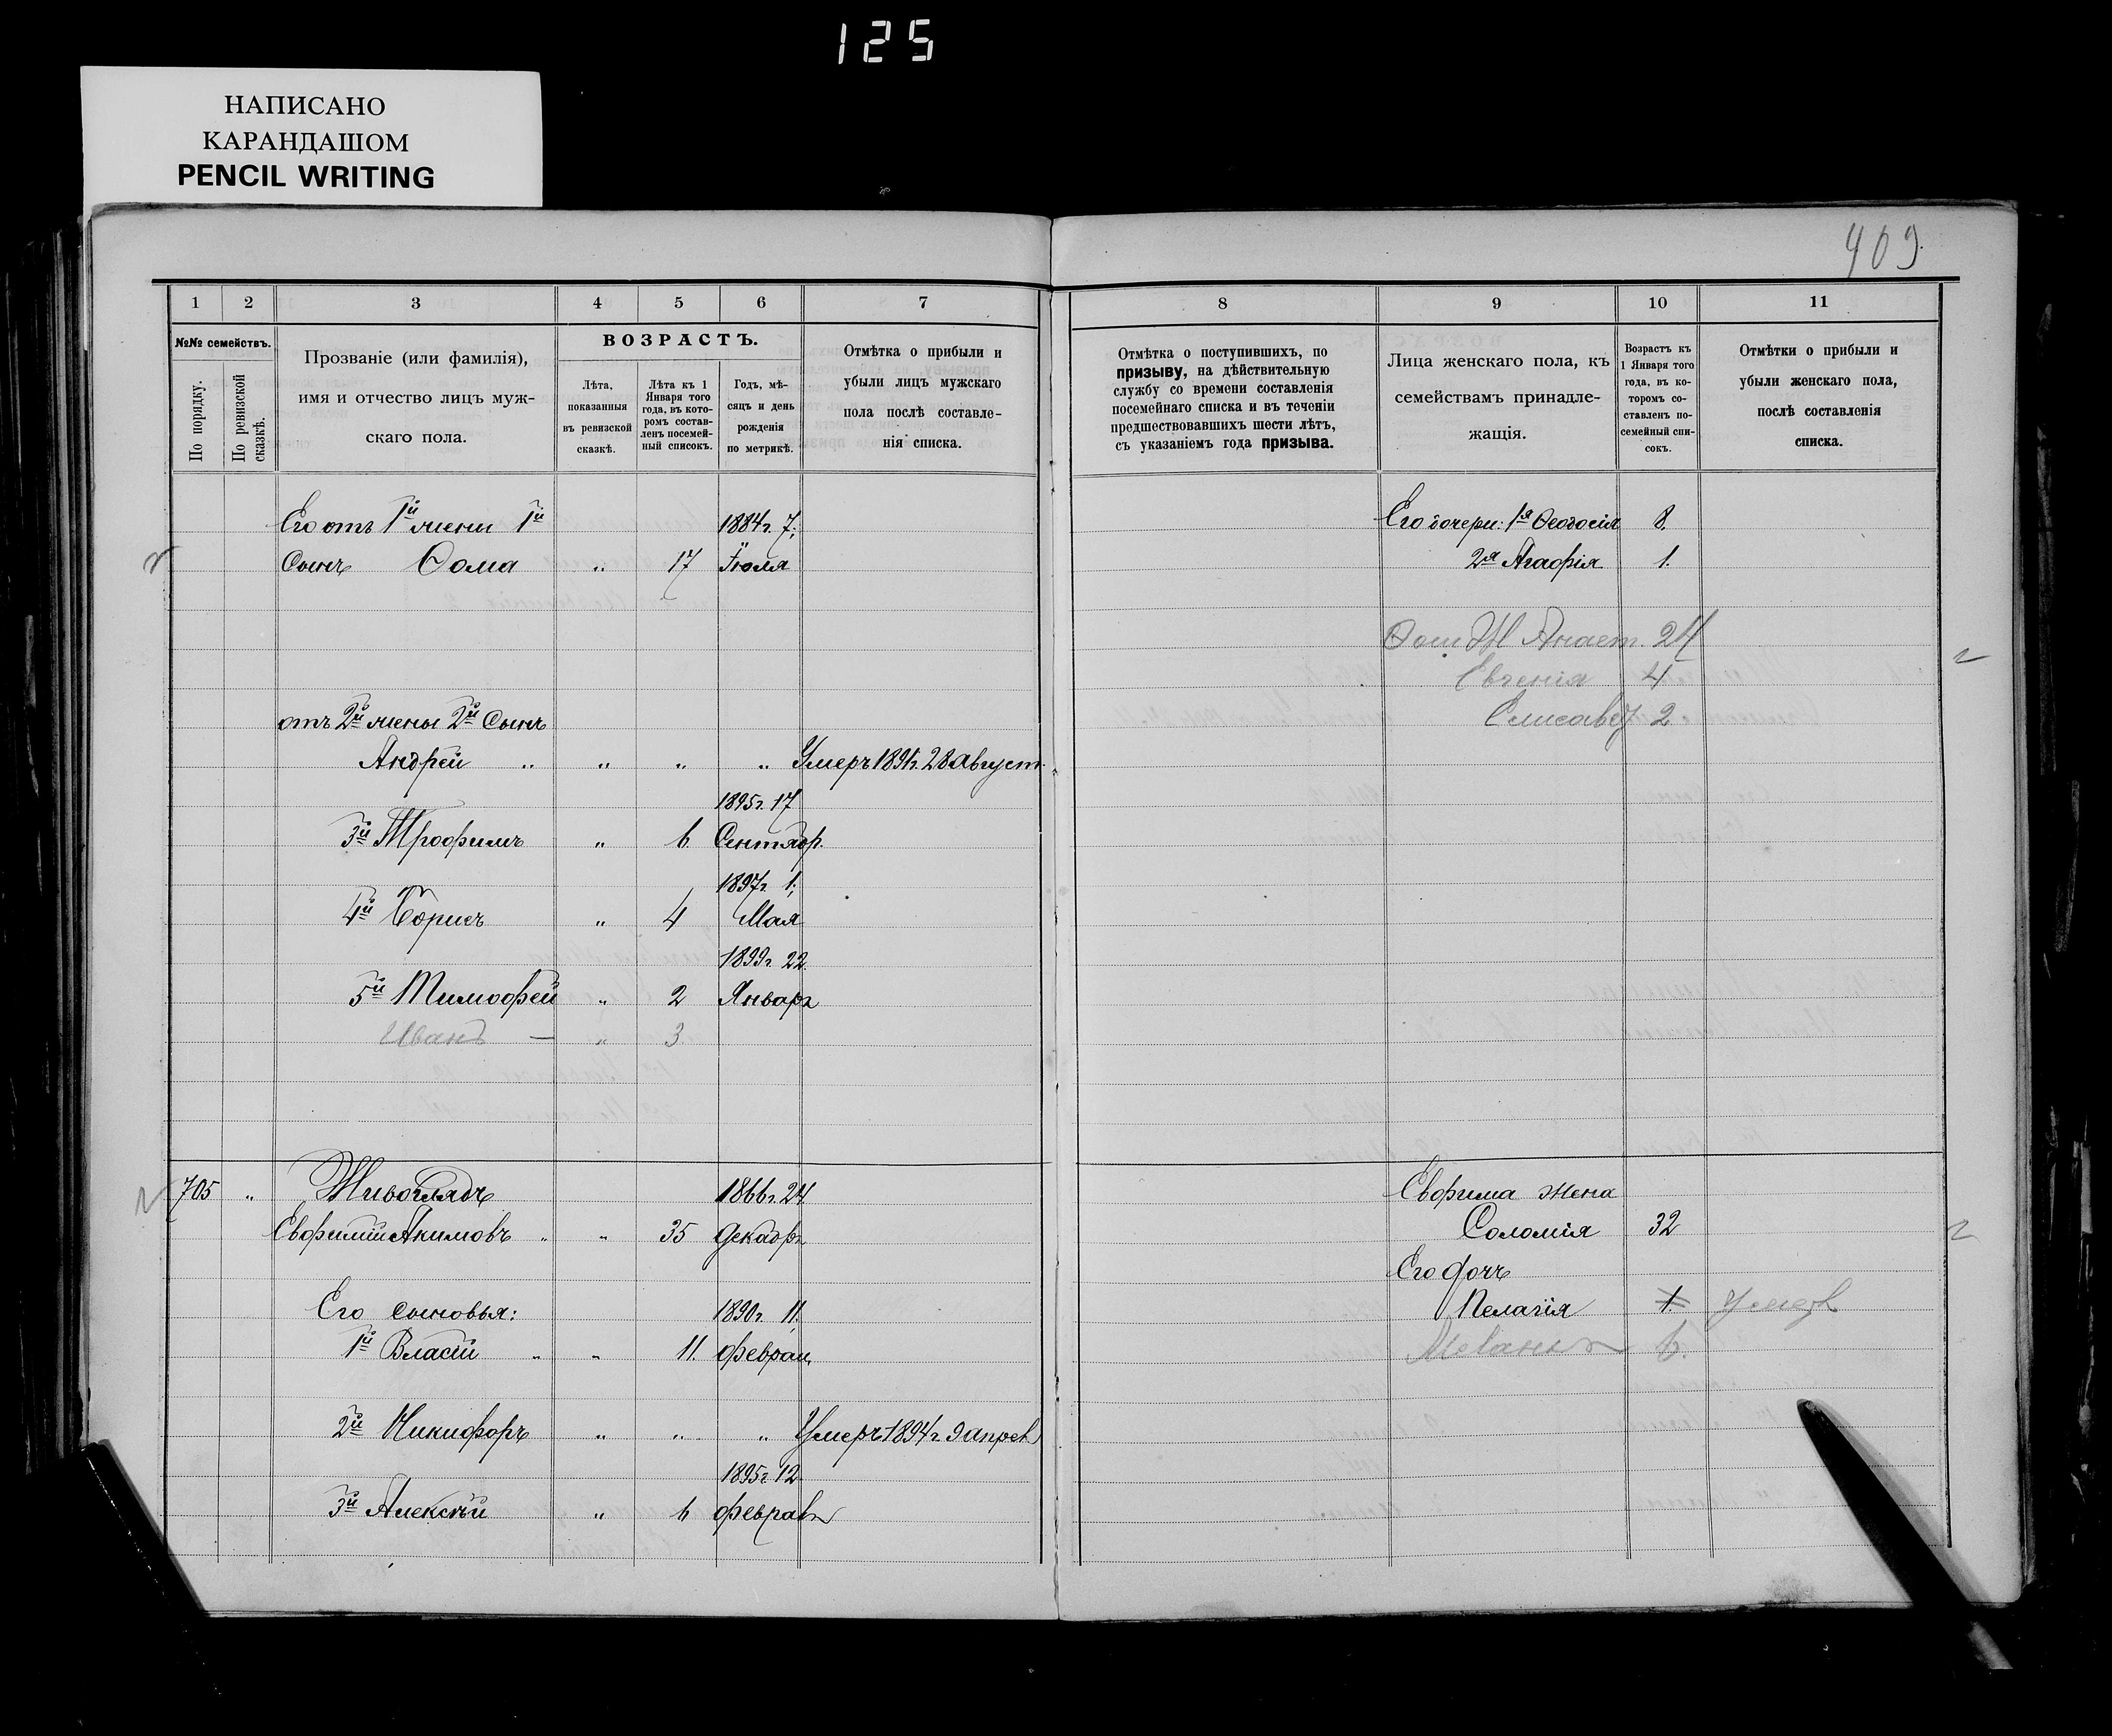 125
НАПИСАНО
КАРАНДАШОМ
PENCIL WRITING
409
1 2 3 4 5 6 7
№№ семействъ.
По порядку.
По ревизской сказкѣ.
Прозваніе (или фамилія),
имя и отчество лицъ муж-
скаго пола.
ВОЗРАСТЪ.
Лѣта,
показанныя
въ ревизской
сказкѣ.
Лѣта къ 1
Января того
года, въ кото-
ромъ состав-
ленъ посемей-
ный списокъ.
Годъ, мѣ-
сяцъ и день
рожденія
по метрикѣ.
Отмѣтка о прибыли и
убыли лицъ мужскаго
пола послѣ составле-
нія списка.
Его отъ 1й жены 1й 1884г. 7;
Сынъ Ѳома „ 17 Іюля
отъ 2й жены 2й Сынъ
Андрей „ „ „ „ Умеръ 1891г. 28 Август.
1895г. 17
3й Трофимъ „ 6. Сентябр.
1897г. 1;
4й Борисъ „ 4 Мая
1899г. 22
5й Тимофей „ 2 Январь
Иванъ — „ 3
705 „ Живоглядъ 1866г. 24
Евфимій Акимовъ „ „ 35 Декабрь
Его сыновья: 1890г. 11.
1й Власій „ „ 11. Феврал.
2й Никифоръ „ „ „ Умеръ 1894г. 9 апрел
1895г. 12
3й Алексѣй „ 6 Феврал
8 9 10 11
Отмѣтка о поступившихъ, по
призыву, на дѣйствительную
службу со времени составленія
посемейнаго списка и въ теченіи
предшествовавшихъ шести лѣтъ,
съ указаніемъ года призыва.
Лица женскаго пола, къ
семействамъ принадле-
жащія.
Возрастъ къ
1 Января того
года, въ ко-
торомъ со-
ставленъ по-
семейный спи-
сокъ.
Отмѣтки о прибыли и
убыли женскаго пола,
послѣ составленія
списка.
Его дочери: 1я Ѳеодосія 8.
2я Агафія 1.
Ѳом Ж Анаст. 24
Евгенія 4
Елисавет 2
Евфима жена
Соломія 32
Его дочь
Пелагія 1. Умер
Меланья 6.